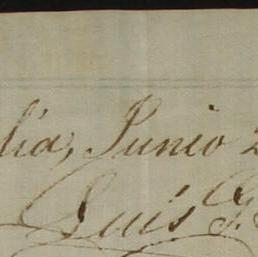 lia, Junio 2
Luis G.